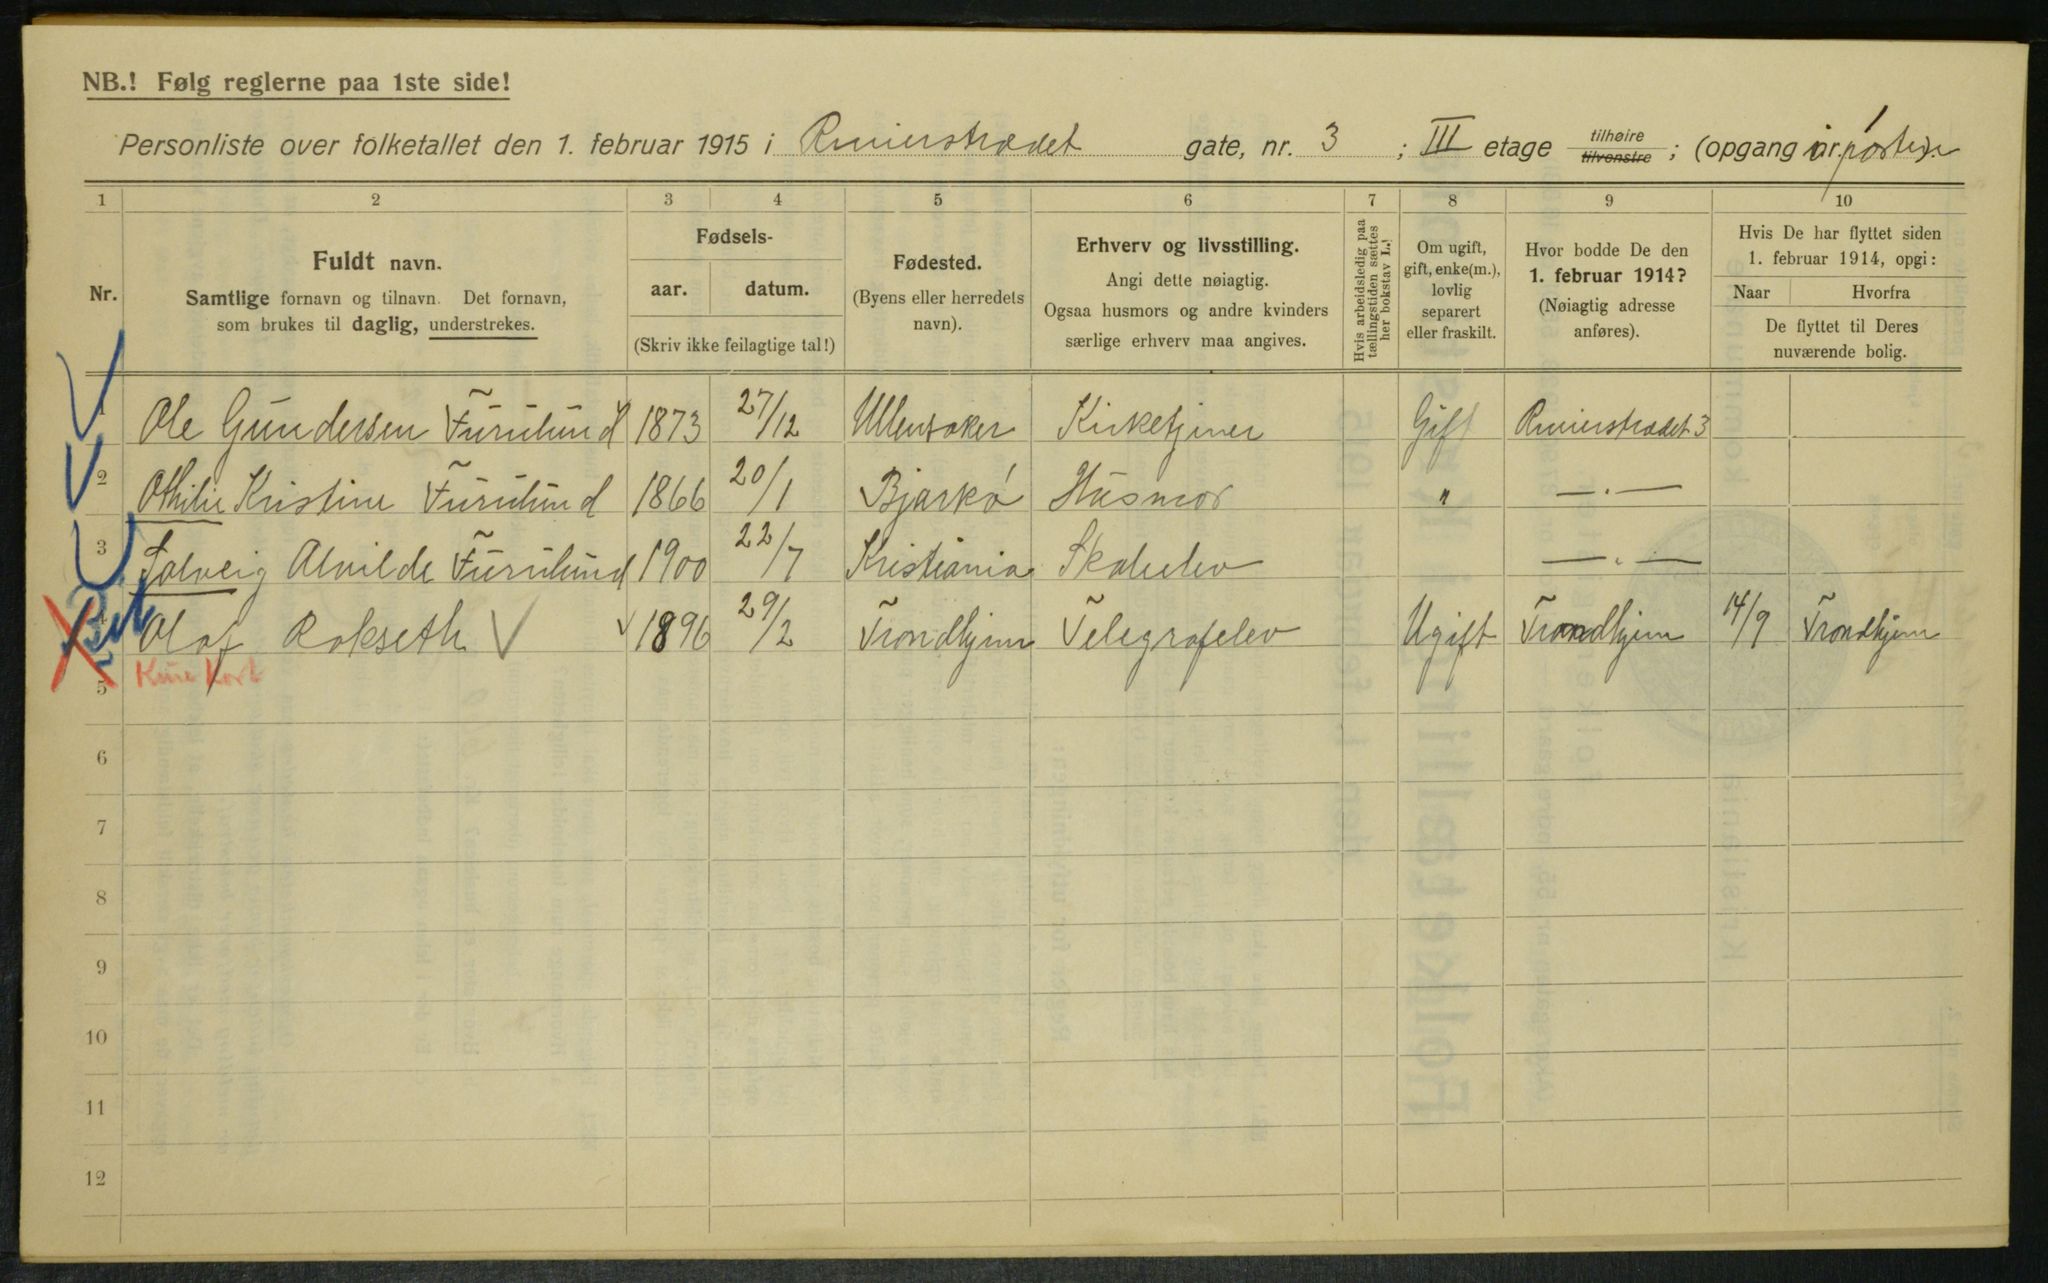 NB.! Følg reglerne paa 1ste side!
Personliste over folketallet den 1. februar 1915 i Rwierstrædet gate, nr. 3 ; III etage tilhøire tilvenstre ; (opgang nr. i porten).
1 2 3 4 5 6 7 8 9 10
Nr.
Fuldt navn.
Samtlige fornavn og tilnavn. Det fornavn,
som brukes til daglig, understrekes.
Fødsels-
aar. datum.
(Skriv ikke feilagtige tal!)
Fødested.
(Byens eller herredets
navn).
Erhverv og livsstilling.
Angi dette nøiagtig.
Ogsaa husmors og andre kvinders
særlige erhverv maa angives.
Hvis arbeidsledig paa
tællingstiden sættes
her bokstav L.!
Om ugift,
gift, enke(m.),
lovlig
separert
eller fraskilt.
Hvor bodde De den
1. februar 1914?
(Nøiagtig adresse
anføres).
Hvis De har flyttet siden
1. februar 1914, opgi:
Naar Hvorfra
De flyttet til Deres
nuværende bolig.
1 Ole Gundersen Furulund 1873 27/12 Ullensaker Kirketjener Gift Rwierstrædet 3
2 Othilie Kristine Furulund 1866 20/1 Bjarkø Husmor " —„—
3 Solveig Alvilde Furulund 1900 22/7 Kristiania Skoleelev —„—
4 Olaf Rokseth 1896 29/2 Trondhjem Telegrafelev Ugift Trondhjem 14/9 Trondhjem
5 Kort
6
7
8
9
10
11
12